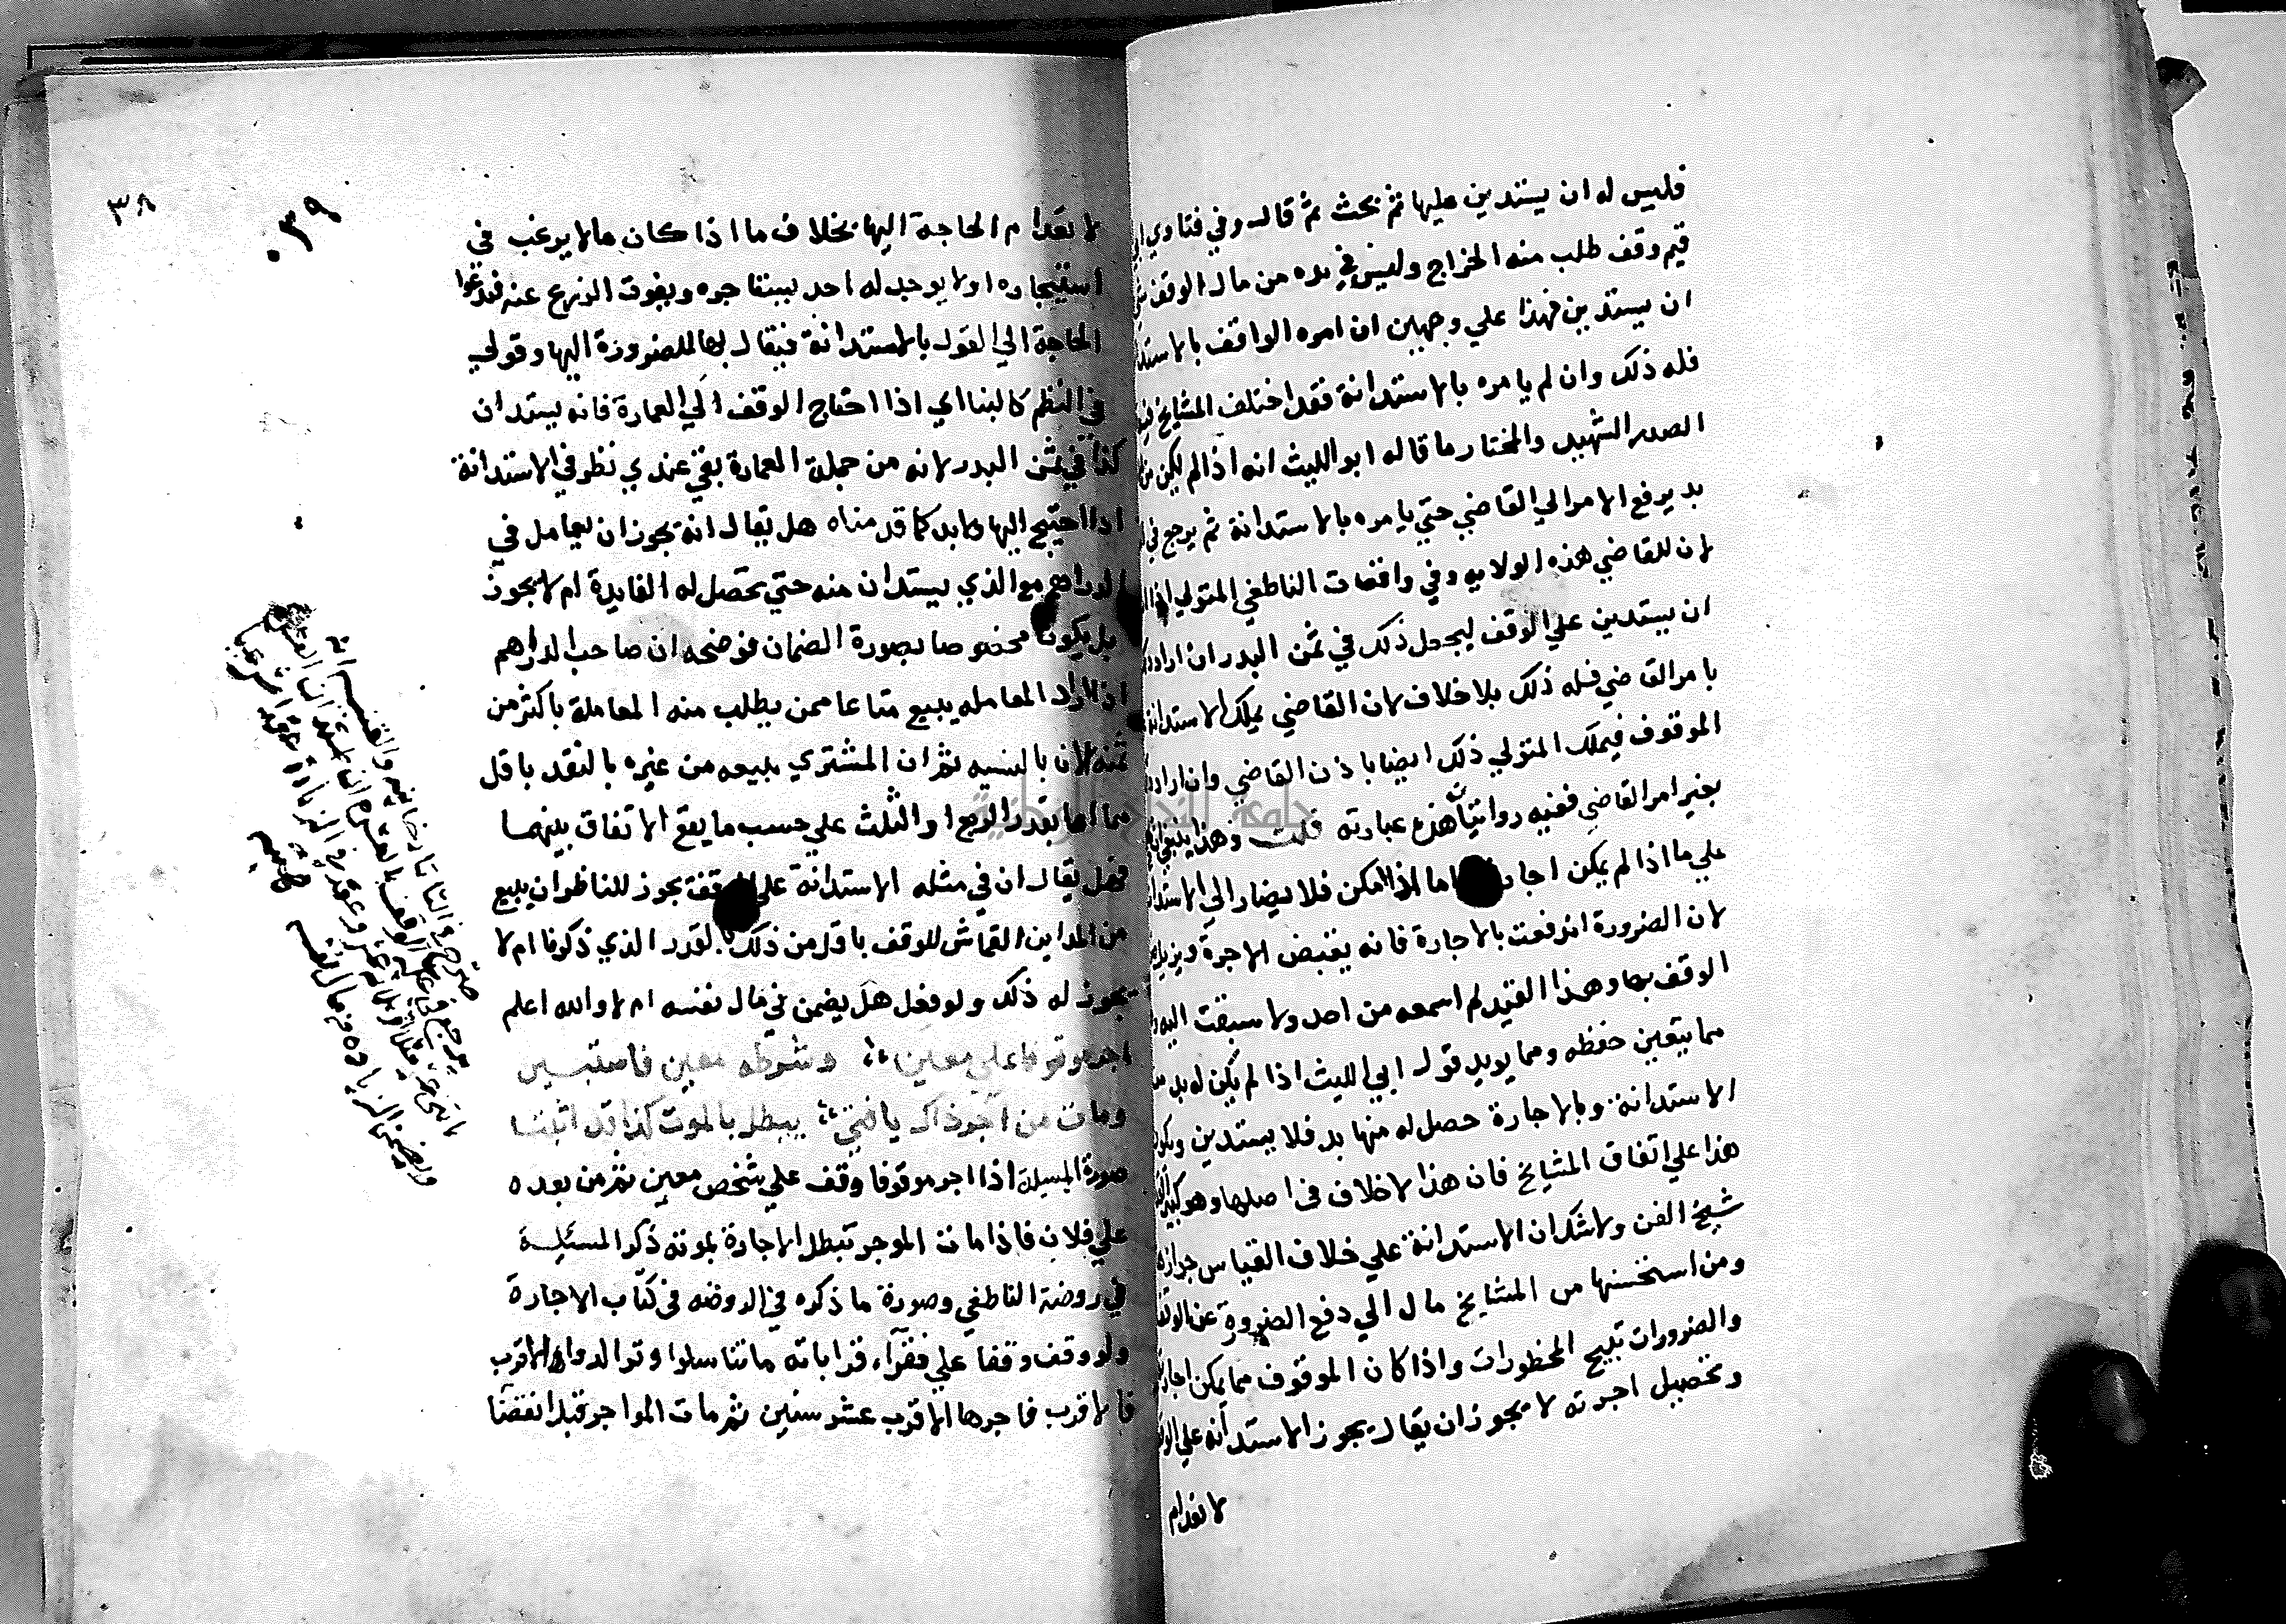 فليس له ان يستدين عليها ثم بحث ثم قال وفي فتاوي
قيم وقف طلب منه الخراج وليس في يده من مال الوقف
ان يستدين فهذا علي وجهين ان امره الواقف بالاستد
فله ذلك وان لم يامره بالاستدانة فقد اختلف المشايخ
الصدر الشهيد والمختار ما قاله ابو الليث انه اذا لم يكن من
بد يرفع الامر الي القاضي حتي يامره بالاستدانة ثم يرجع في
لان للقاضي هذه الولايه وفي واقعات الناطفي المتولي اذا
ان يستدين علي الوقف ليجعل ذلك في ثمن البدر ان اراد
بامر القاضي فله ذلك بلا خلاف لان القاضي يملك الاستدانة
الموقوف فيملك المتولي ذلك ايضا باذن القاضي وان اراد
بغير امر القاضي ففيه روايتان هذه عبارته قلت وهذا
علي ما اذا لم يمكن اجا اما اذا امكن فلا يصار الي الاستدا
لان الضرورة اندفعت بالاجارة فانه يقبض الاجرة ويزيل
الوقف بها وهذا القيد لم اسمعه من احد ولا سبقت اليه
مما يتعين حفظه ومما يويد قول ابي الليث اذا لم يكن له بد من
الاستدانة وبالاجارة حصل له منها بد فلا يستدين ويكون
هذا علي اتفاق المشايخ فان هذا لا خلاف في اصلها وهو
شيخ الفن ولا شك ان الاستدانة علي خلاف القياس جوازه
ومن استحسنها من المشايخ مال الي دفع الضرورة عن الوقف
والضرورات تبيح المحظورات واذا كان الموقوف مما يمكن اجار
وتحصيل اجرته لا يجوز ان يقال يجوز الاستدانة علي الو
لانعدام
٣٨
٠٣٩
لانعدام الحاجة اليها بخلاف ما اذا كان مالا يرغب في
استيجاره اولا يوجد له احد يستاجره ويفوت الزرع عنه فتدعوا
الحاجة الي القول بالاستدانة فيقال بها للضرورة اليها وقولي
في النظم كالبنا اي اذا احتاج الوقف الي العمارة فانه يستدان
كذا في ثمن البدر لانه من جملة العمارة بقي عندي نظر في الاستدانة
اذا احتيج اليها ولابد كما قدمناه هل يقال انه يجوز ان يعامل في
الدراهم مع الذي يستدان منه حتي تحصل له الفايدة ام لا يجوز
بل يكون مخصوصا بصورة الضمان فوضحه ان صاحب الدراهم
اذا اراد المعامله يبيع متاعا ممن يطلب منه المعاملة باكثر من
ثمنه الان بالنسيه ثم ان المشتري يبيعه من غيره بالنقد باقل
مما بقدر الربع او الثلث علي حسب ما يقع الاتفاق بينهما
فهل يقال ان في مثله الاستدانة علي الوقف يجوز للناظر ان يبيع
من المداين القماش للوقف باقل من ذلك بالقدر الذي ذكرنا ام لا
يجوز له ذلك ولو فعل هل يضمن في مال نفسه ام لا والله اعلم
اجر موقوفا علي معين وشوطه معين فاستبين
ومات من اجر ذاك يا فتي يبطل بالموت كذا قد اثبتا
صورة المسيلة اذا اجر موقوفا وقف علي شخص معين ثم من بعده
علي فلان فاذا مات الموجر تبطل الاجارة بموته ذكر المسئلة
في روضة الناطفي وصورة ما ذكره في الروضه في كتاب الاجارة
ولو وقف وقفا علي فقراء قراباته ما تناسلوا وتوالدوا الاقرب
فالاقرب فاجرها الاقرب عشر سنين ثم مات المواجر قبل انقضا